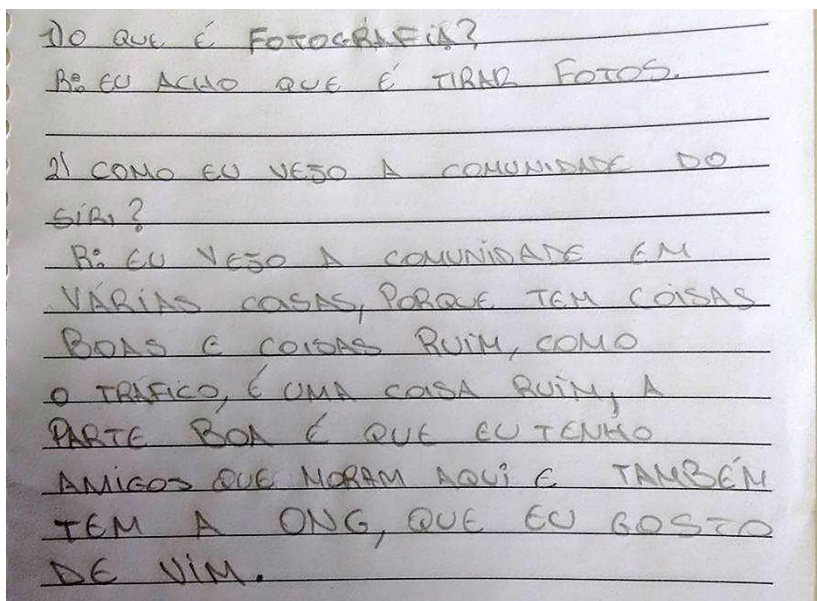 1) O QUE É FOTOGRÁFIA?
R: EU ACHO QUE É TIRAR FOTOS.
2) COMO EU VEJO A COMUNIDADE DO
SIRI?
R: EU VEJO A COMUNIDADE EM
VÁRIAS COISAS, PORQUE TEM COISAS
BOAS E COISAS RUIM, COMO
O TRÁFICO, É UMA COISA RUIM, A
PARTE BOA É QUE EU TENHO
AMIGOS QUE MORAM AQUI E TAMBÉM
TEM A ONG, QUE EU GOSTO
DE VIM.